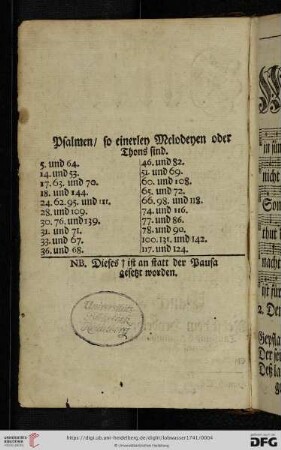 Psalmen / so einerley Melodeyen oder
Thons sind.
5. und 64.
14. und 53.
17. 63. und 70.
18. und 144.
24. 62. 95. und 111.
28. und 109.
30. 76. und 139.
31. und 71.
33. und 67.
36. und 68.
46. und 82.
51. und 69.
60. und 108.
65. und 72.
66. 98. und 118.
74. und 116.
77. und 86.
78. und 90.
100. 131. und 142.
117. und 124.
NB. Dieses ? ist an statt der Pausa
gesetzt worden.
in sin
nicht
Son
thut
nacht
ist für
2. De
Der so
Deß la
http://digi.ub.uni-heidelberg.de/diglit/lobwasser1741/0004
© Universitätsbibliothek Heidelberg
gefördert durch die
DFG